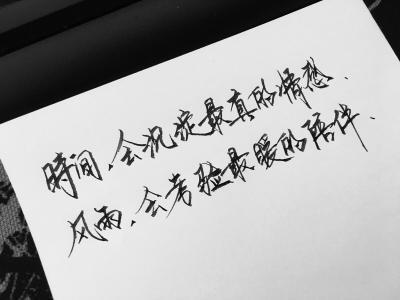 時间，会沉淀最真的情感、
风雨，会考验最暖的陪伴、